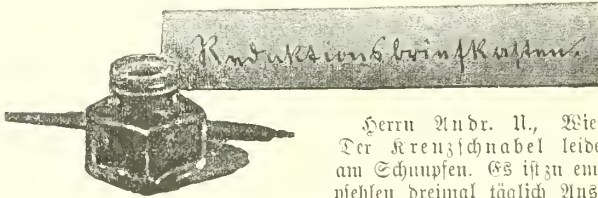 Redaktionsbriefkasten.
Herrn Andr. U., Wie
Der Kreuzschnabel leide
am Schnupfen. Es ist zu em
pfehlen dreimal täglich Aus